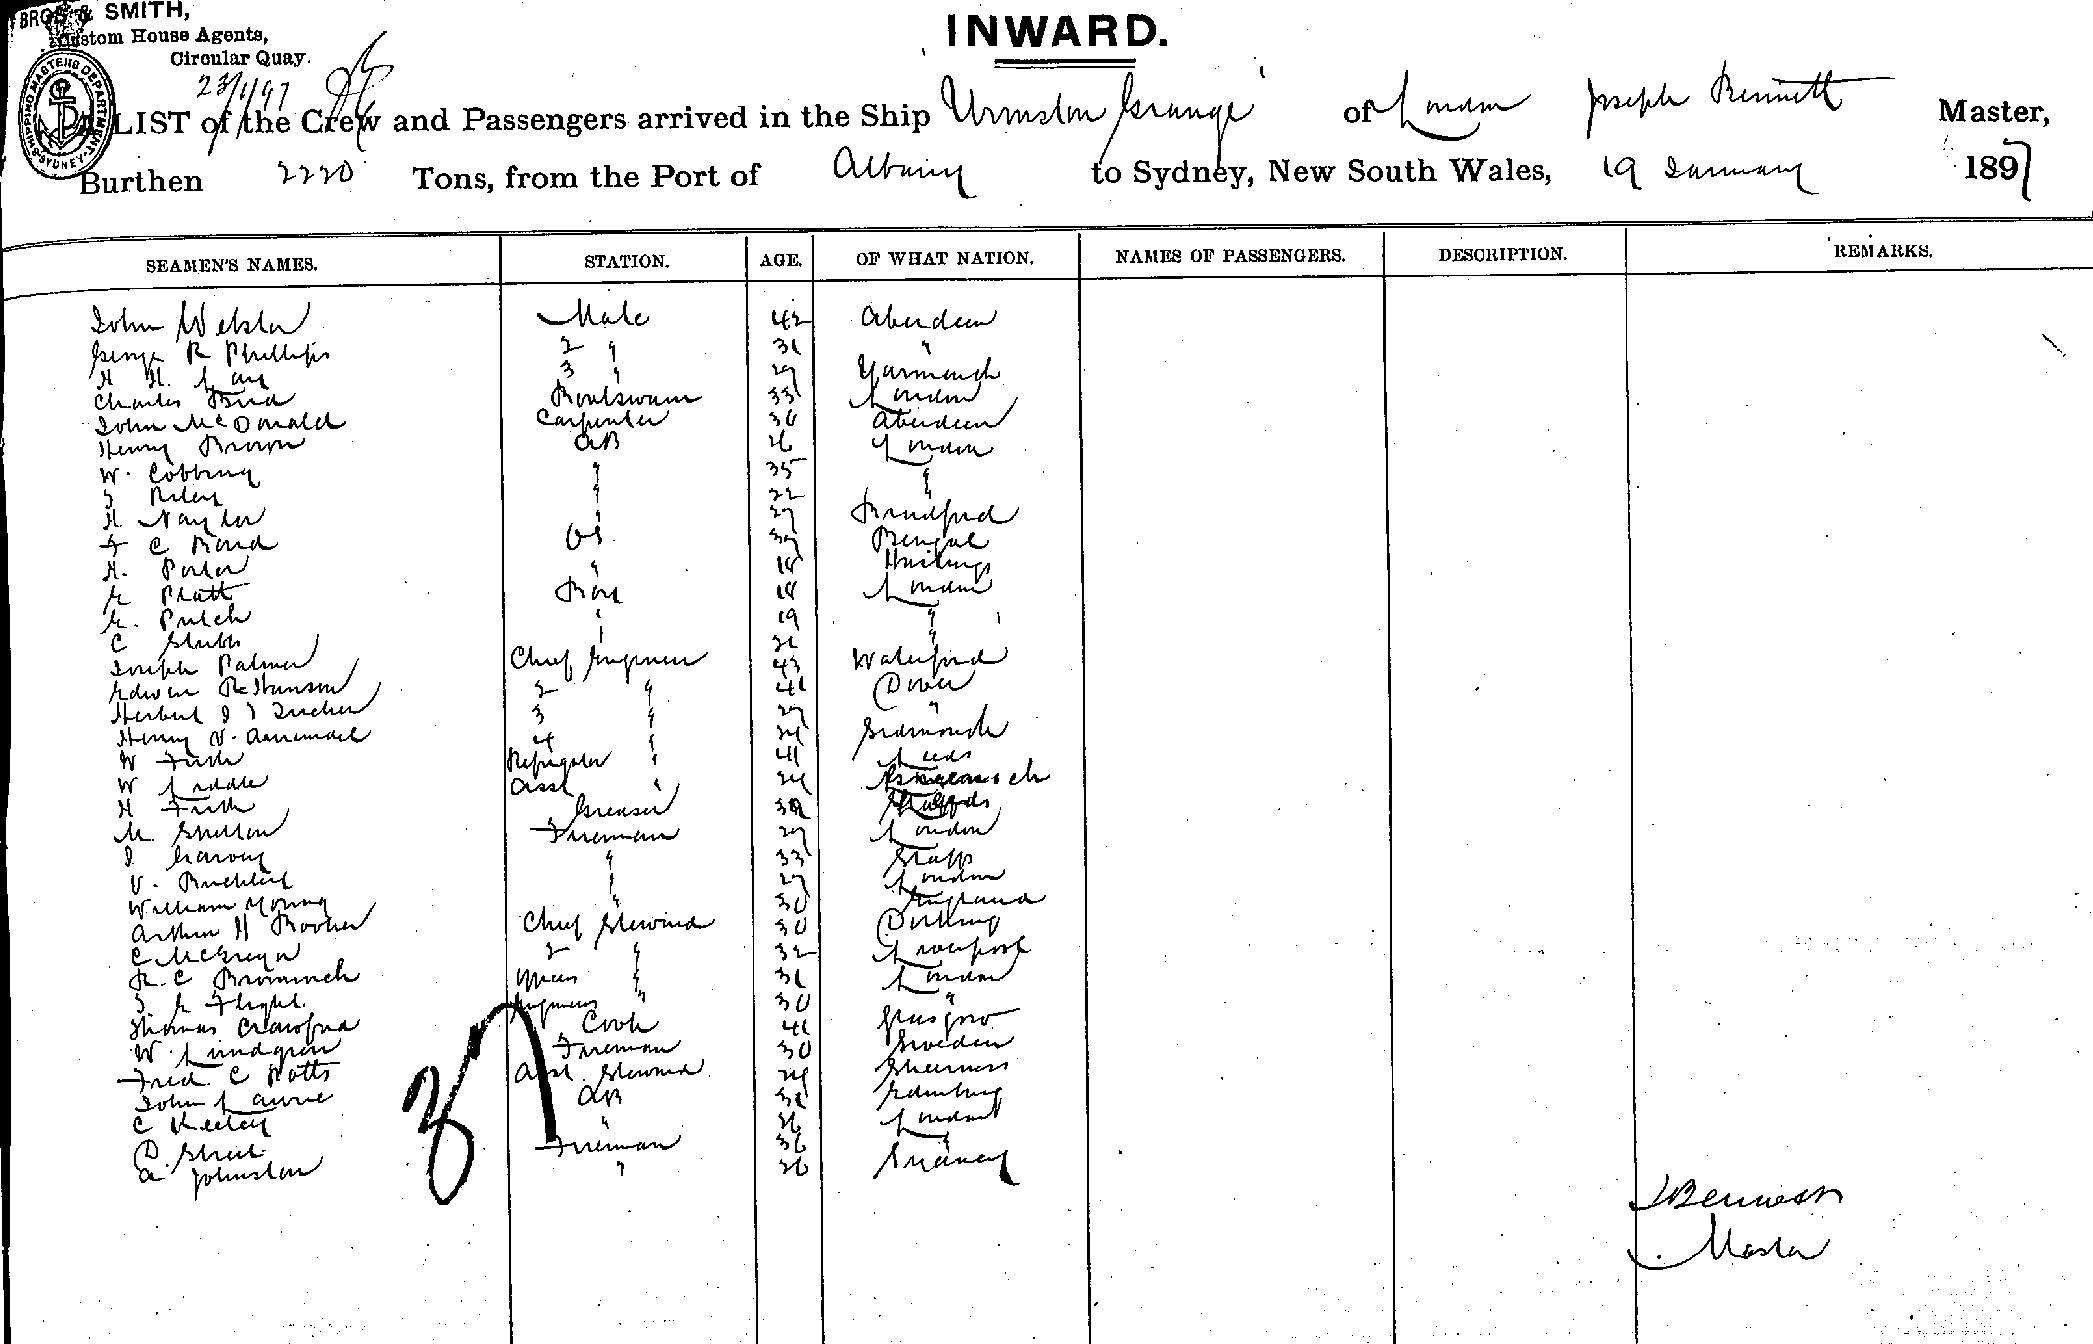 BROS & SMITH,
Custom House Agents,
Circular Quay.
23/1/97
SHIPPING MASTERS DEPARTMENT SYDNEY
INWARD.
LIST of the Crew and Passengers arrived in the Ship Urmston Grange of London Joseph Bennett Master,
Burthen 2220 Tons, from the Port of Albany to Sydney, New South Wales, 19 January 1897
SEAMEN'S NAMES. STATION. AGE. OF WHAT NATION. NAMES OF PASSENGERS. DESCRIPTION. REMARKS.
John Webster Mate 42 Aberdeen
George R Phillips 2 " 31 "
H H. Lay 3 " 29 Yarmouth
Charles Bird Boatswain 33 London
John McDonald Carpenter 30 Aberdeen
Henry Brown AB 26 London
W. Cobbing " 35 "
J Riley " 22 "
H Naylor " 27 Bradford
F C Bond OS 39 Bengal
H. Porter " 18 Hastings
G Pratt Boy 18 London
G. Putch " 19 "
C Stubbs " 21 "
Joseph Palmer Chief Engineer 43 Waterford
Edwin Robinson 2 " 41 Dover
Herbert J J 3 " 29 "
Henry V. 4 " 24 Sidmouth
W Firth Refrigator " 41 Leeds
W Liddle Asst " 24
H Firth Greaser 39
M Shelton Fireman 29 London
J Garvey " 33 Staffs
V. Buckley " 27 London
William Young " 30 England
Arthur H Booker Chief Steward 30 Dorking
C McGregor 2 " 32 Liverpool
R. C Bromwich Mess " 31 London
J. G Flight. Engineers " 30 "
Thomas Crawford Cook 41 Glasgow
W Lundgren Fireman 30 Sweden
Fred C Potts Asst. Steward 24 Sheerness
John Lawrie AB 31 Edinburg
C Keeley " 26 London
D. Street Fireman 36 "
A Johnston " 26 Sydney
37
J Bennett
Master